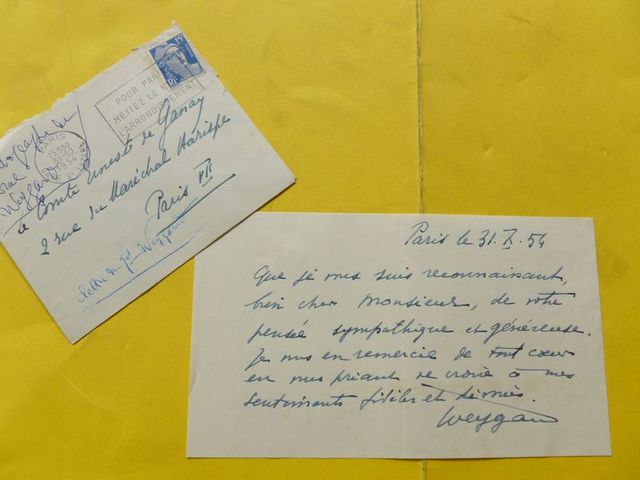 15F
RF
POUR PARIS
METTEZ LE N°
L'ARRONDISSEMENT
PARIS
1954
autographe du
Weygand
Le Comte Ernest de Ganay
2 rue du Maréchal Harispe
Paris VII
lettre du Gal Weygand
Paris le 31.X.54
Que je vous suis reconnaissant,
bien cher Monsieur, de votre
pensée sympathique et généreuse.
Je vous en remercie de tout cœur
en vous priant de croire à mes
sentiments fidèles et dévoués.
Weygand